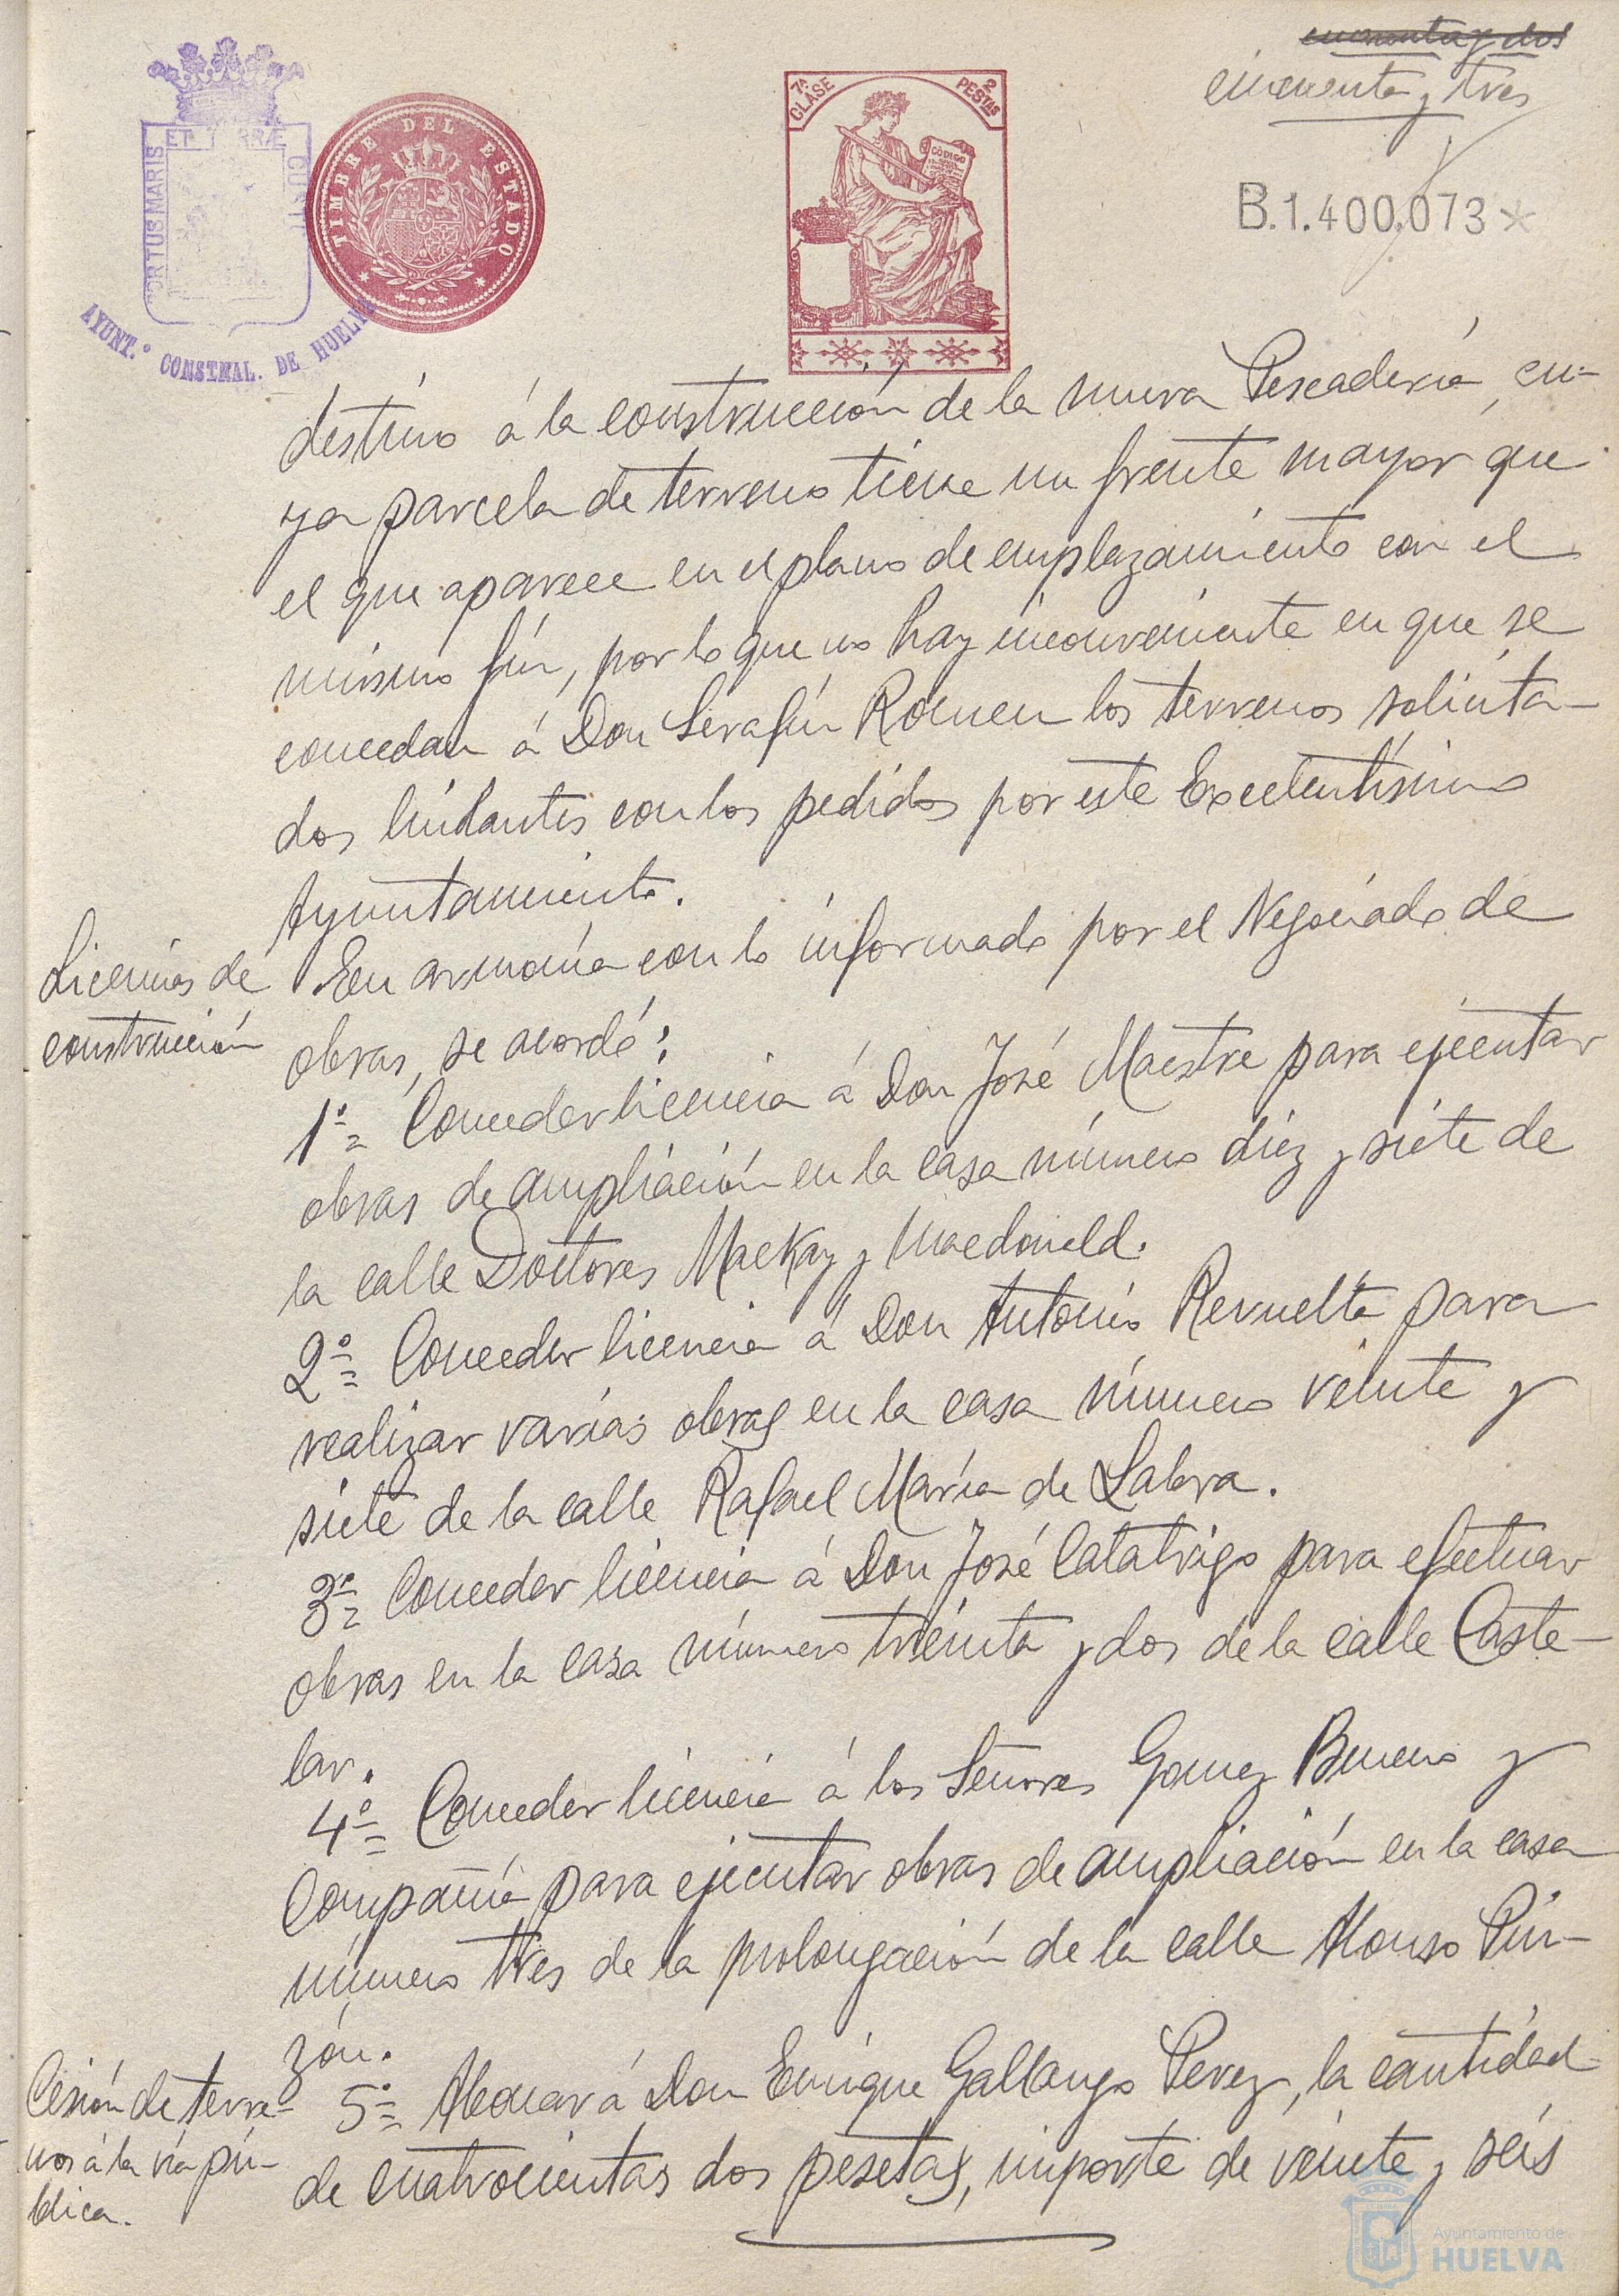 cincuenta y dos
cincuenta y tres
B.1.400,073*
PORTUS MARIS ET TERRÆ CUSTODIA
AYUNT.º CONSTNAL. DE HUELVA
TIMBRE DEL ESTADO
7ª CLASE 2 PESTAS
CÓDIGO
destino á la construcción de la nueva Pescadería, cu-
ya parcela de terreno tiene un frente mayor que
el que aparece en el plano de emplazamiento con el
mismo fin, por lo que no hay inconveniente en que se
concedan á Don Serafín Romeu los terrenos solicita-
dos lindantes con los pedidos por este Excelentísimo
Ayuntamiento.
Licencias de
construcción
En armonía con lo informado por el Negociado de
obras, se acordó:
1º= Conceder licencia á Don José Maestre para ejecutar
obras de ampliación en la casa número diez y siete de
la calle Doctores Mackay y Macdonald.
2º= Conceder licencia á Don Antonio Revuelta para
realizar varias obras en la casa número veinte y
siete de la calle Rafael María de Labra.
3º= Conceder licencia á Don José Catatrigo para efectuar
obras en la casa número treinta y dos de la calle Caste-
lar.
4º= Conceder licencia á los Señores Gomez Bueno y
Compañía para ejecutar obras de ampliación en la casa
número tres de la prolongación de la calle Alonso Pin-
zón.
Cesión de terre-
nos á la vía pú-
blica.
5º= Abonar á Don Enrique Gallango Perez, la cantidad
de cuatrocientas dos pesetas, importe de veinte y seis
Ayuntamiento de
HUELVA